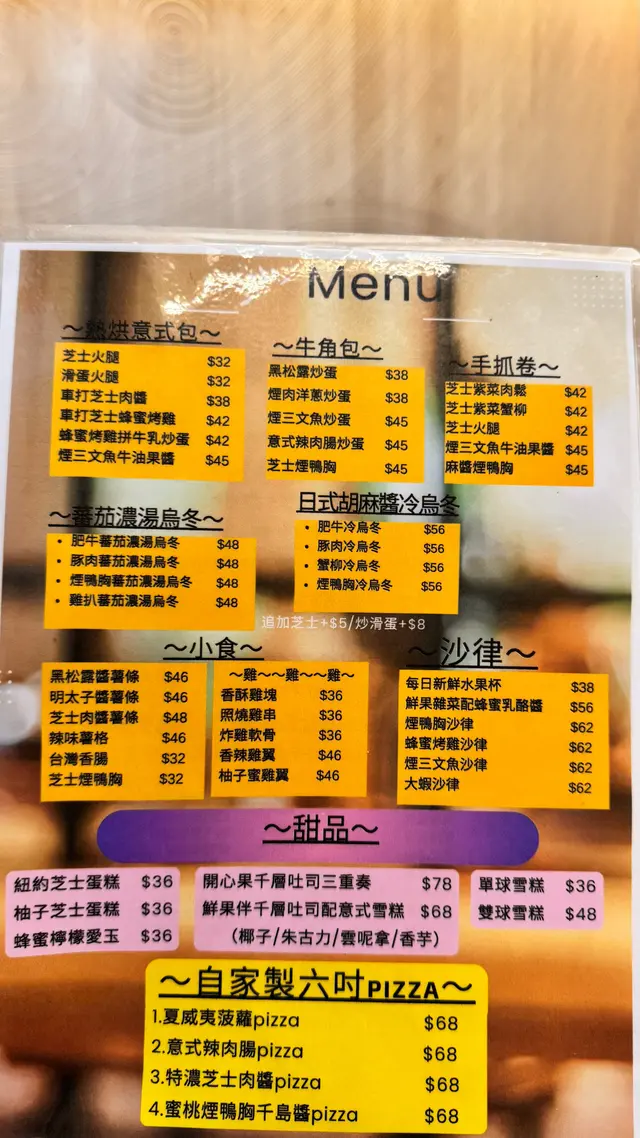 Menu
～熱烘意式包～
芝士火腿 $32
滑蛋火腿 $32
車打芝士肉醬 $38
車打芝士蜂蜜烤雞 $42
蜂蜜烤雞拼牛乳炒蛋 $42
煙三文魚牛油果醬 $45
～牛角包～
黑松露炒蛋 $38
煙肉洋蔥炒蛋 $38
煙三文魚炒蛋 $45
意式辣肉腸炒蛋 $45
芝士煙鴨胸 $45
～手抓卷～
芝士紫菜肉鬆 $42
芝士紫菜蟹柳 $42
芝士火腿 $42
煙三文魚牛油果醬 $45
麻醬煙鴨胸 $45
～蕃茄濃湯烏冬～
• 肥牛蕃茄濃湯烏冬 $48
• 豚肉蕃茄濃湯烏冬 $48
• 煙鴨胸蕃茄濃湯烏冬 $48
• 雞扒蕃茄濃湯烏冬 $48
日式胡麻醬冷烏冬
• 肥牛冷烏冬 $56
• 豚肉冷烏冬 $56
• 蟹柳冷烏冬 $56
• 煙鴨胸冷烏冬 $56
追加芝士+$5/炒滑蛋+$8
～小食～
黑松露醬薯條 $46
明太子醬薯條 $46
芝士肉醬薯條 $48
辣味薯格 $46
台灣香腸 $32
芝士煙鴨胸 $32
～雞～～雞～～雞～
香酥雞塊 $36
照燒雞串 $36
炸雞軟骨 $36
香辣雞翼 $46
柚子蜜雞翼 $46
～沙律～
每日新鮮水果杯 $38
鮮果雜菜配蜂蜜乳酪醬 $56
煙鴨胸沙律 $62
蜂蜜烤雞沙律 $62
煙三文魚沙律 $62
大蝦沙律 $62
～甜品～
紐約芝士蛋糕 $36
柚子芝士蛋糕 $36
蜂蜜檸檬愛玉 $36
開心果千層吐司三重奏 $78
鮮果伴千層吐司配意式雪糕 $68
（椰子/朱古力/雲呢拿/香芋）
單球雪糕 $36
雙球雪糕 $48
～自家製六吋PIZZA～
1.夏威夷菠蘿pizza $68
2.意式辣肉腸pizza $68
3.特濃芝士肉醬pizza $68
4.蜜桃煙鴨胸千島醬pizza $68